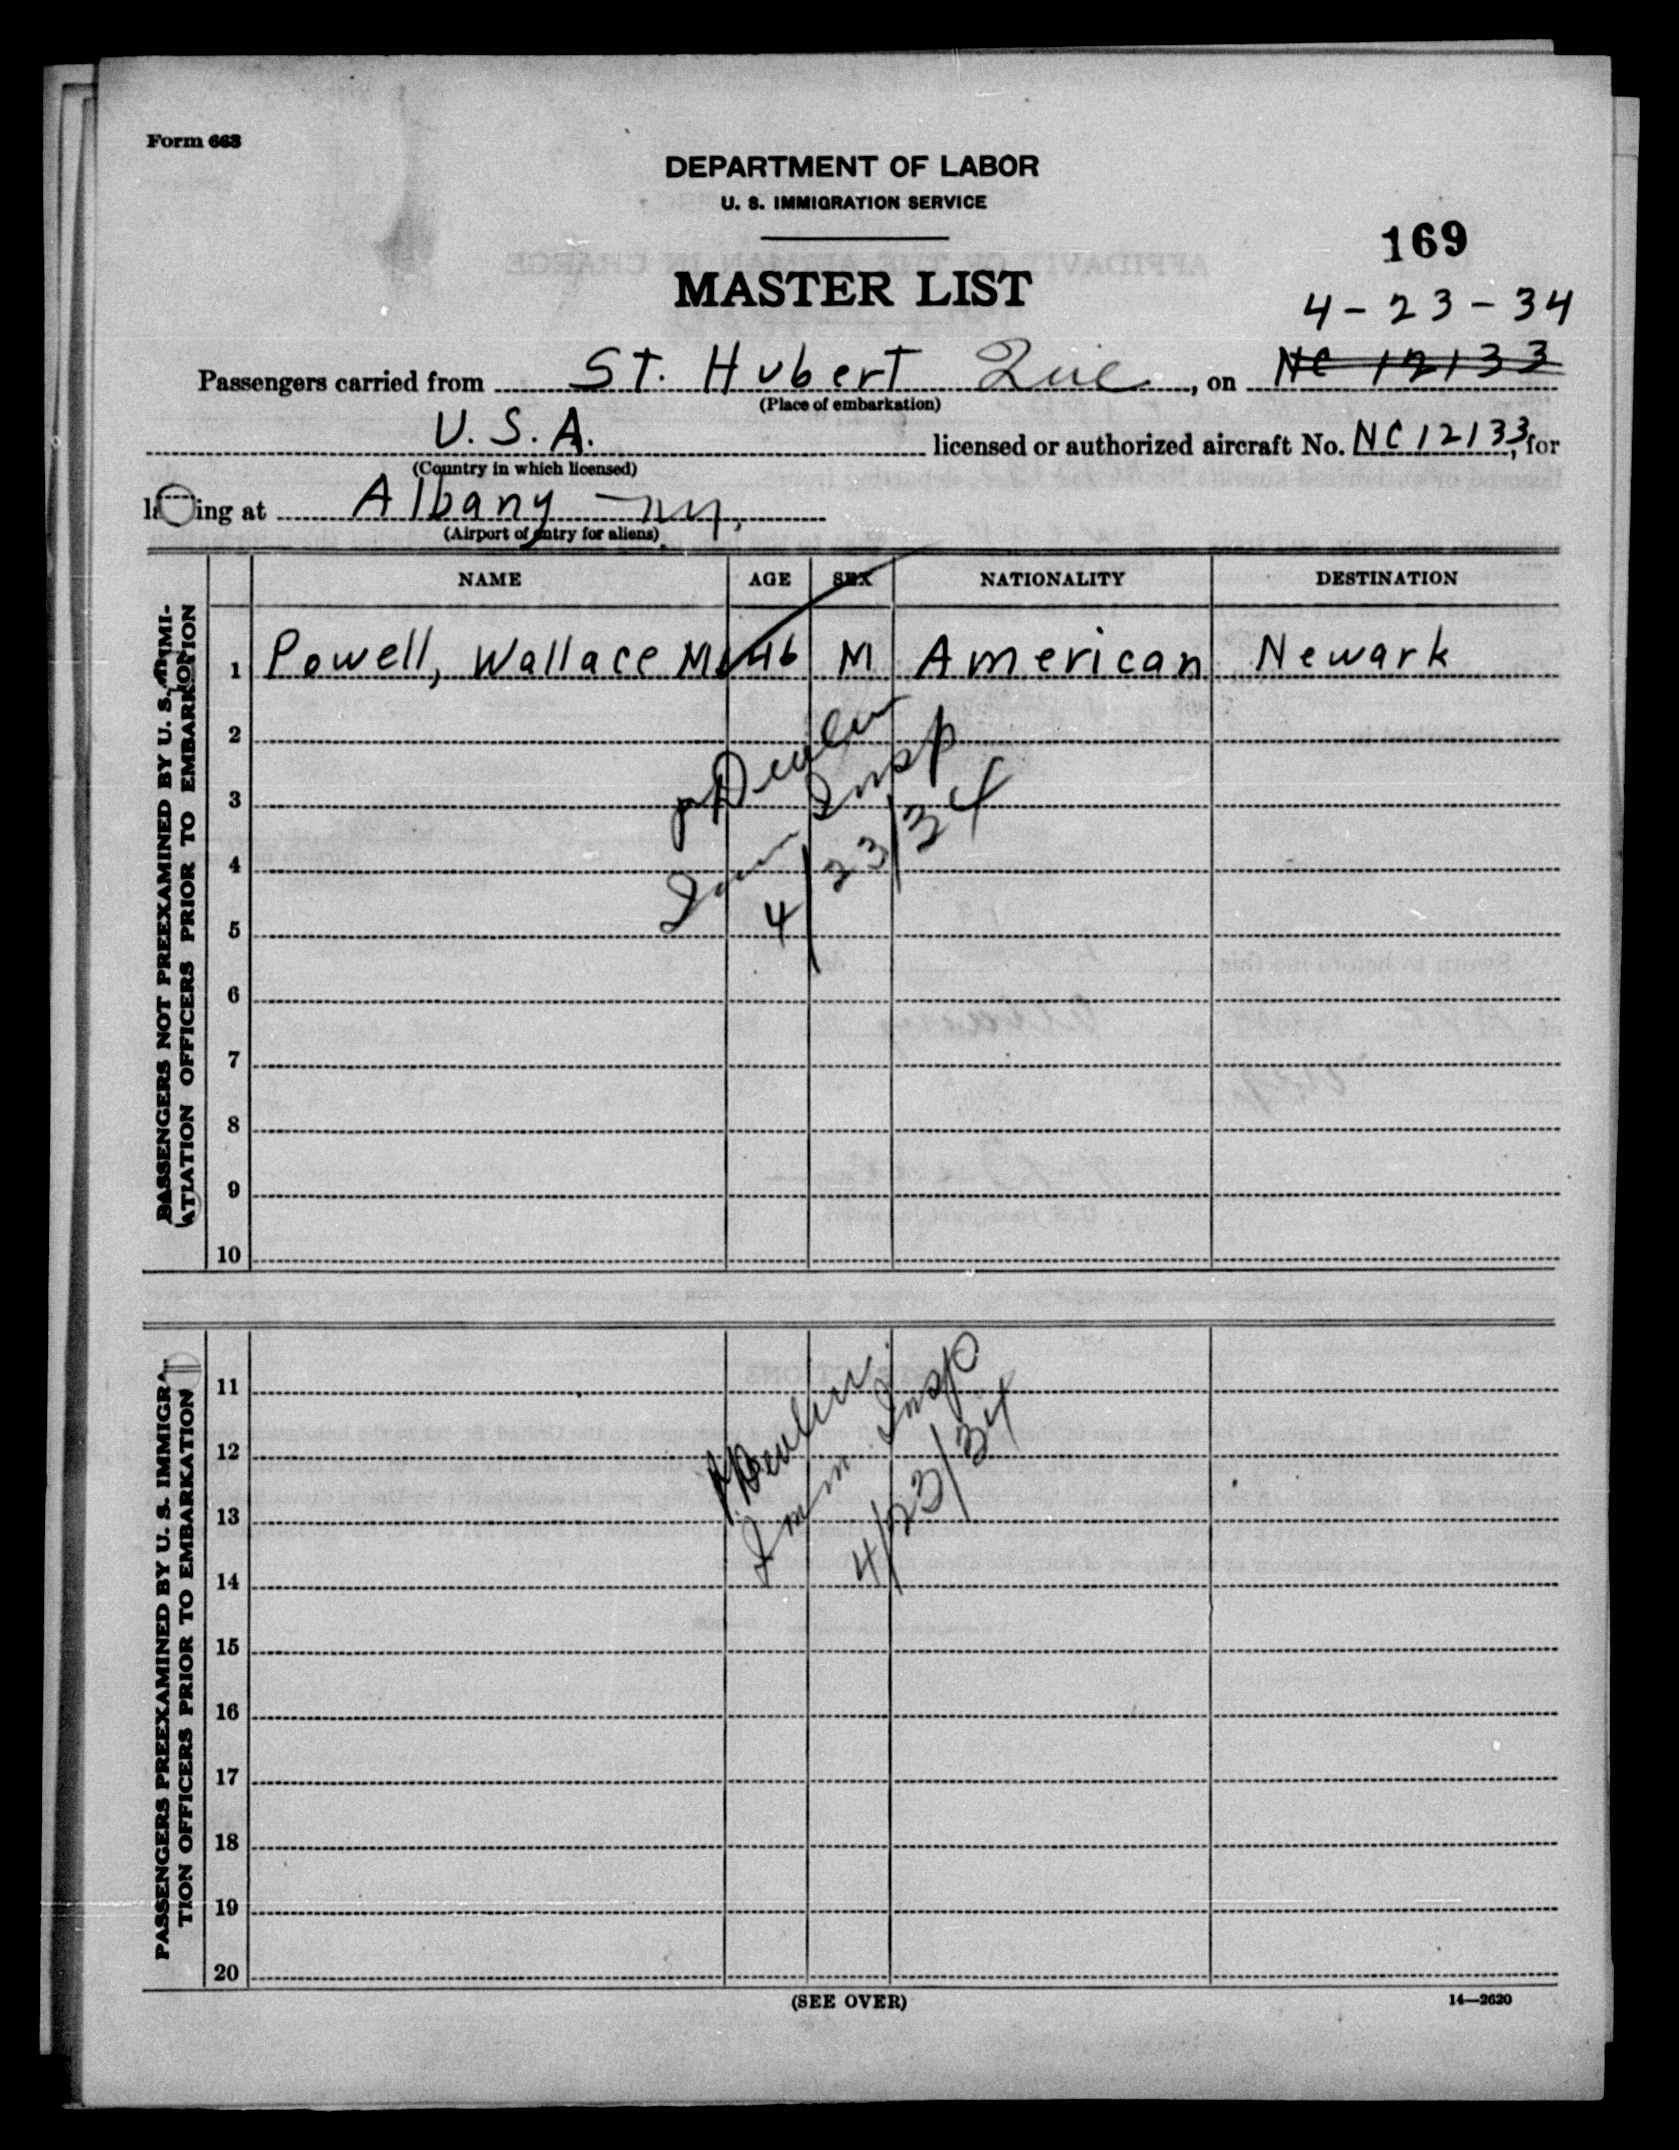 Form 663
DEPARTMENT OF LABOR
U. S. IMMIGRATION SERVICE
169
MASTER LIST
4-23-34
Passengers carried from St. Hubert Que, on NC 12133
(Place of embarkation)
U.S.A. licensed or authorized aircraft No. NC12133, for
(Country in which licensed)
la ing at Albany NY,
(Airport of entry for aliens)
NAME AGE SEX NATIONALITY DESTINATION
PASSENGERS NOT PREEXAMINED BY U. S. IMMI-
GRATION OFFICERS PRIOR TO EMBARKATION
1 Powell, Wallace M. 46 M American Newark
2
3
4
5
6
7
8
9
10
Imm Insp
4/23/34
PASSENGERS PREEXAMINED BY U. S. IMMIGRA-
TION OFFICERS PRIOR TO EMBARKATION
11
12
13
14
15
16
17
18
19
20
Imm. Insp
4/23/34
(SEE OVER)
14—2620